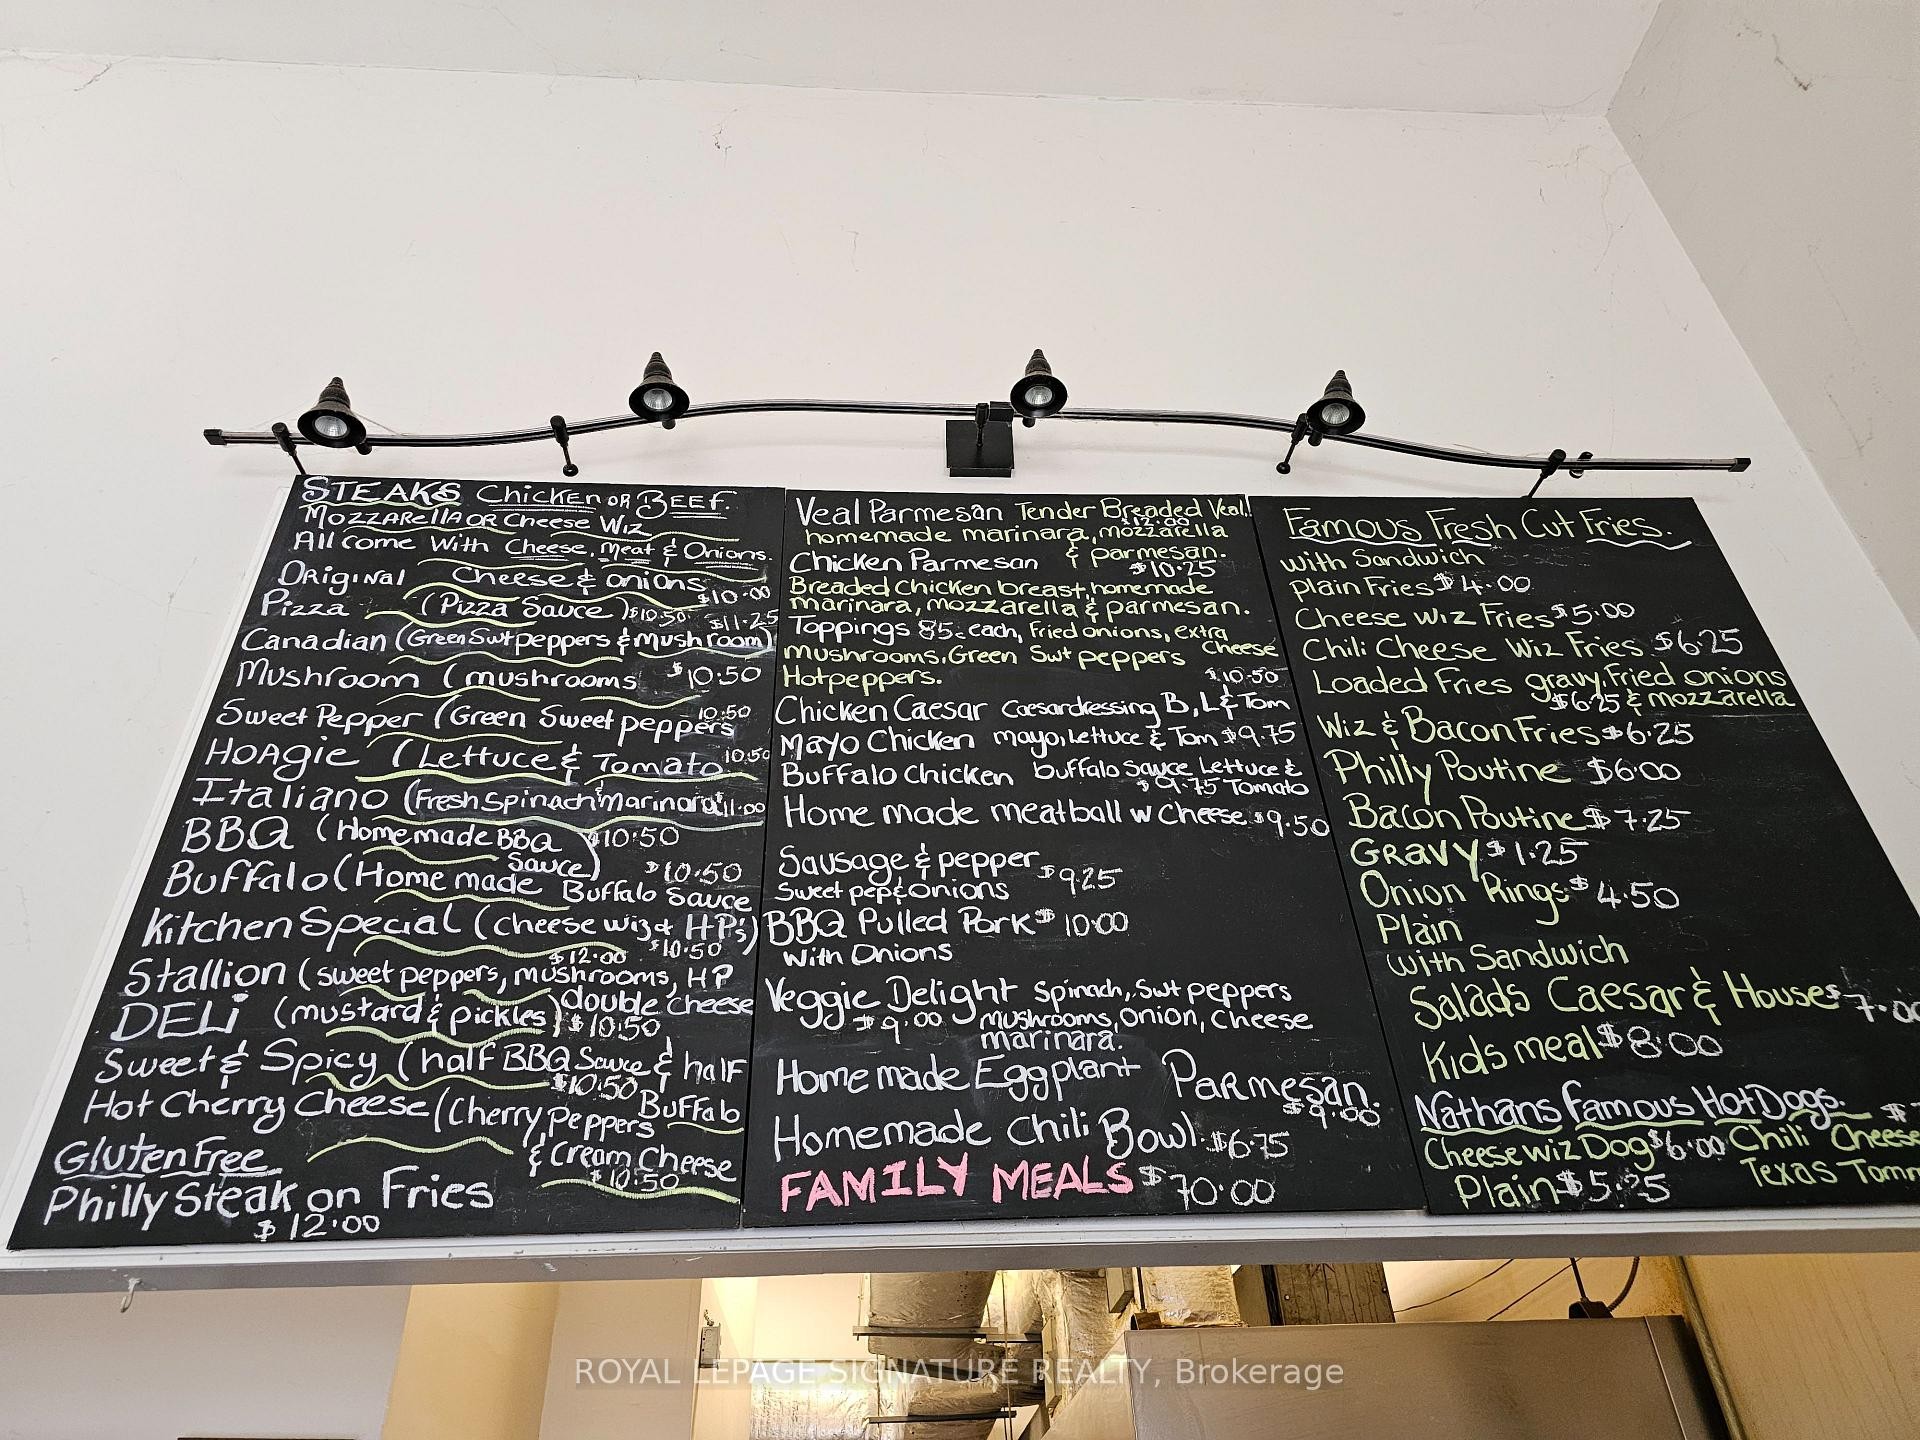 STEAKS Chicken OR BEEF.
MozzaRella OR Cheese Wiz
All come With Cheese, Meat & Onions.
Original Cheese & onions $10.00
Pizza (Pizza Sauce) $10.50 $11.25
Canadian (Green Swt peppers & mushroom)
Mushroom (mushrooms $10.50
Sweet Pepper (Green Sweet peppers 10.50
HoAgie (Lettuce & Tomato 10.50
Italiano (Fresh Spinach Marinara $11.00
BBQ (Homemade BBQ Sauce) $10.50
Buffalo (Home made Buffalo Sauce $10.50
Kitchen Special (cheese wiz & HP's) $10.50
Stallion (sweet peppers, mushrooms, HP $12.00
double cheese
DELi (mustard & pickles) $10.50
Sweet & Spicy (half BBQ Sauce & half Buffalo $10.50
Hot Cherry Cheese (Cherry peppers & Cream Cheese $10.50
Gluten Free
Philly Steak on Fries
$12.00
Veal Parmesan Tender Breaded Veal, $12.00
homemade marinara, mozzarella & parmesan.
Chicken Parmesan $10.25
Breaded Chicken breast, homemade
marinara, mozzarella & parmesan.
Toppings 85c each, fried onions, extra Cheese
mushrooms, Green Swt peppers
Hotpeppers.
Chicken Caesar Caesardressing B, L & Tom $10.50
Mayo Chicken mayo, lettuce & Tom $9.75
Buffalo Chicken buffalo sauce Lettuce &
$9.75 Tomato
Home made meatball w Cheese $9.50
Sausage & pepper $9.25
Sweet pep & onions
BBQ Pulled Pork $10.00
With Onions
Veggie Delight Spinach, Swt peppers
$9.00 mushrooms, onion, cheese
marinara.
Home made Eggplant Parmesan. $9.00
Homemade Chili Bowl. $6.75
FAMILY MEALS $70.00
Famous Fresh Cut Fries.
with Sandwich
Plain Fries $4.00
Cheese Wiz Fries $5.00
Chili Cheese Wiz Fries $6.25
Loaded Fries gravy, Fried onions
$6.25 & mozzarella
Wiz & Bacon Fries $6.25
Philly Poutine $6.00
Bacon Poutine $7.25
GRAVY $1.25
Onion Rings $4.50
Plain
with Sandwich
Salads Caesar & House $7.00
Kids meal $8.00
Nathans Famous Hot Dogs. $
Cheese wiz Dog $6.00 Chili Cheese
Plain $5.25 Texas Tomm
ROYAL LEPAGE SIGNATURE REALTY, Brokerage